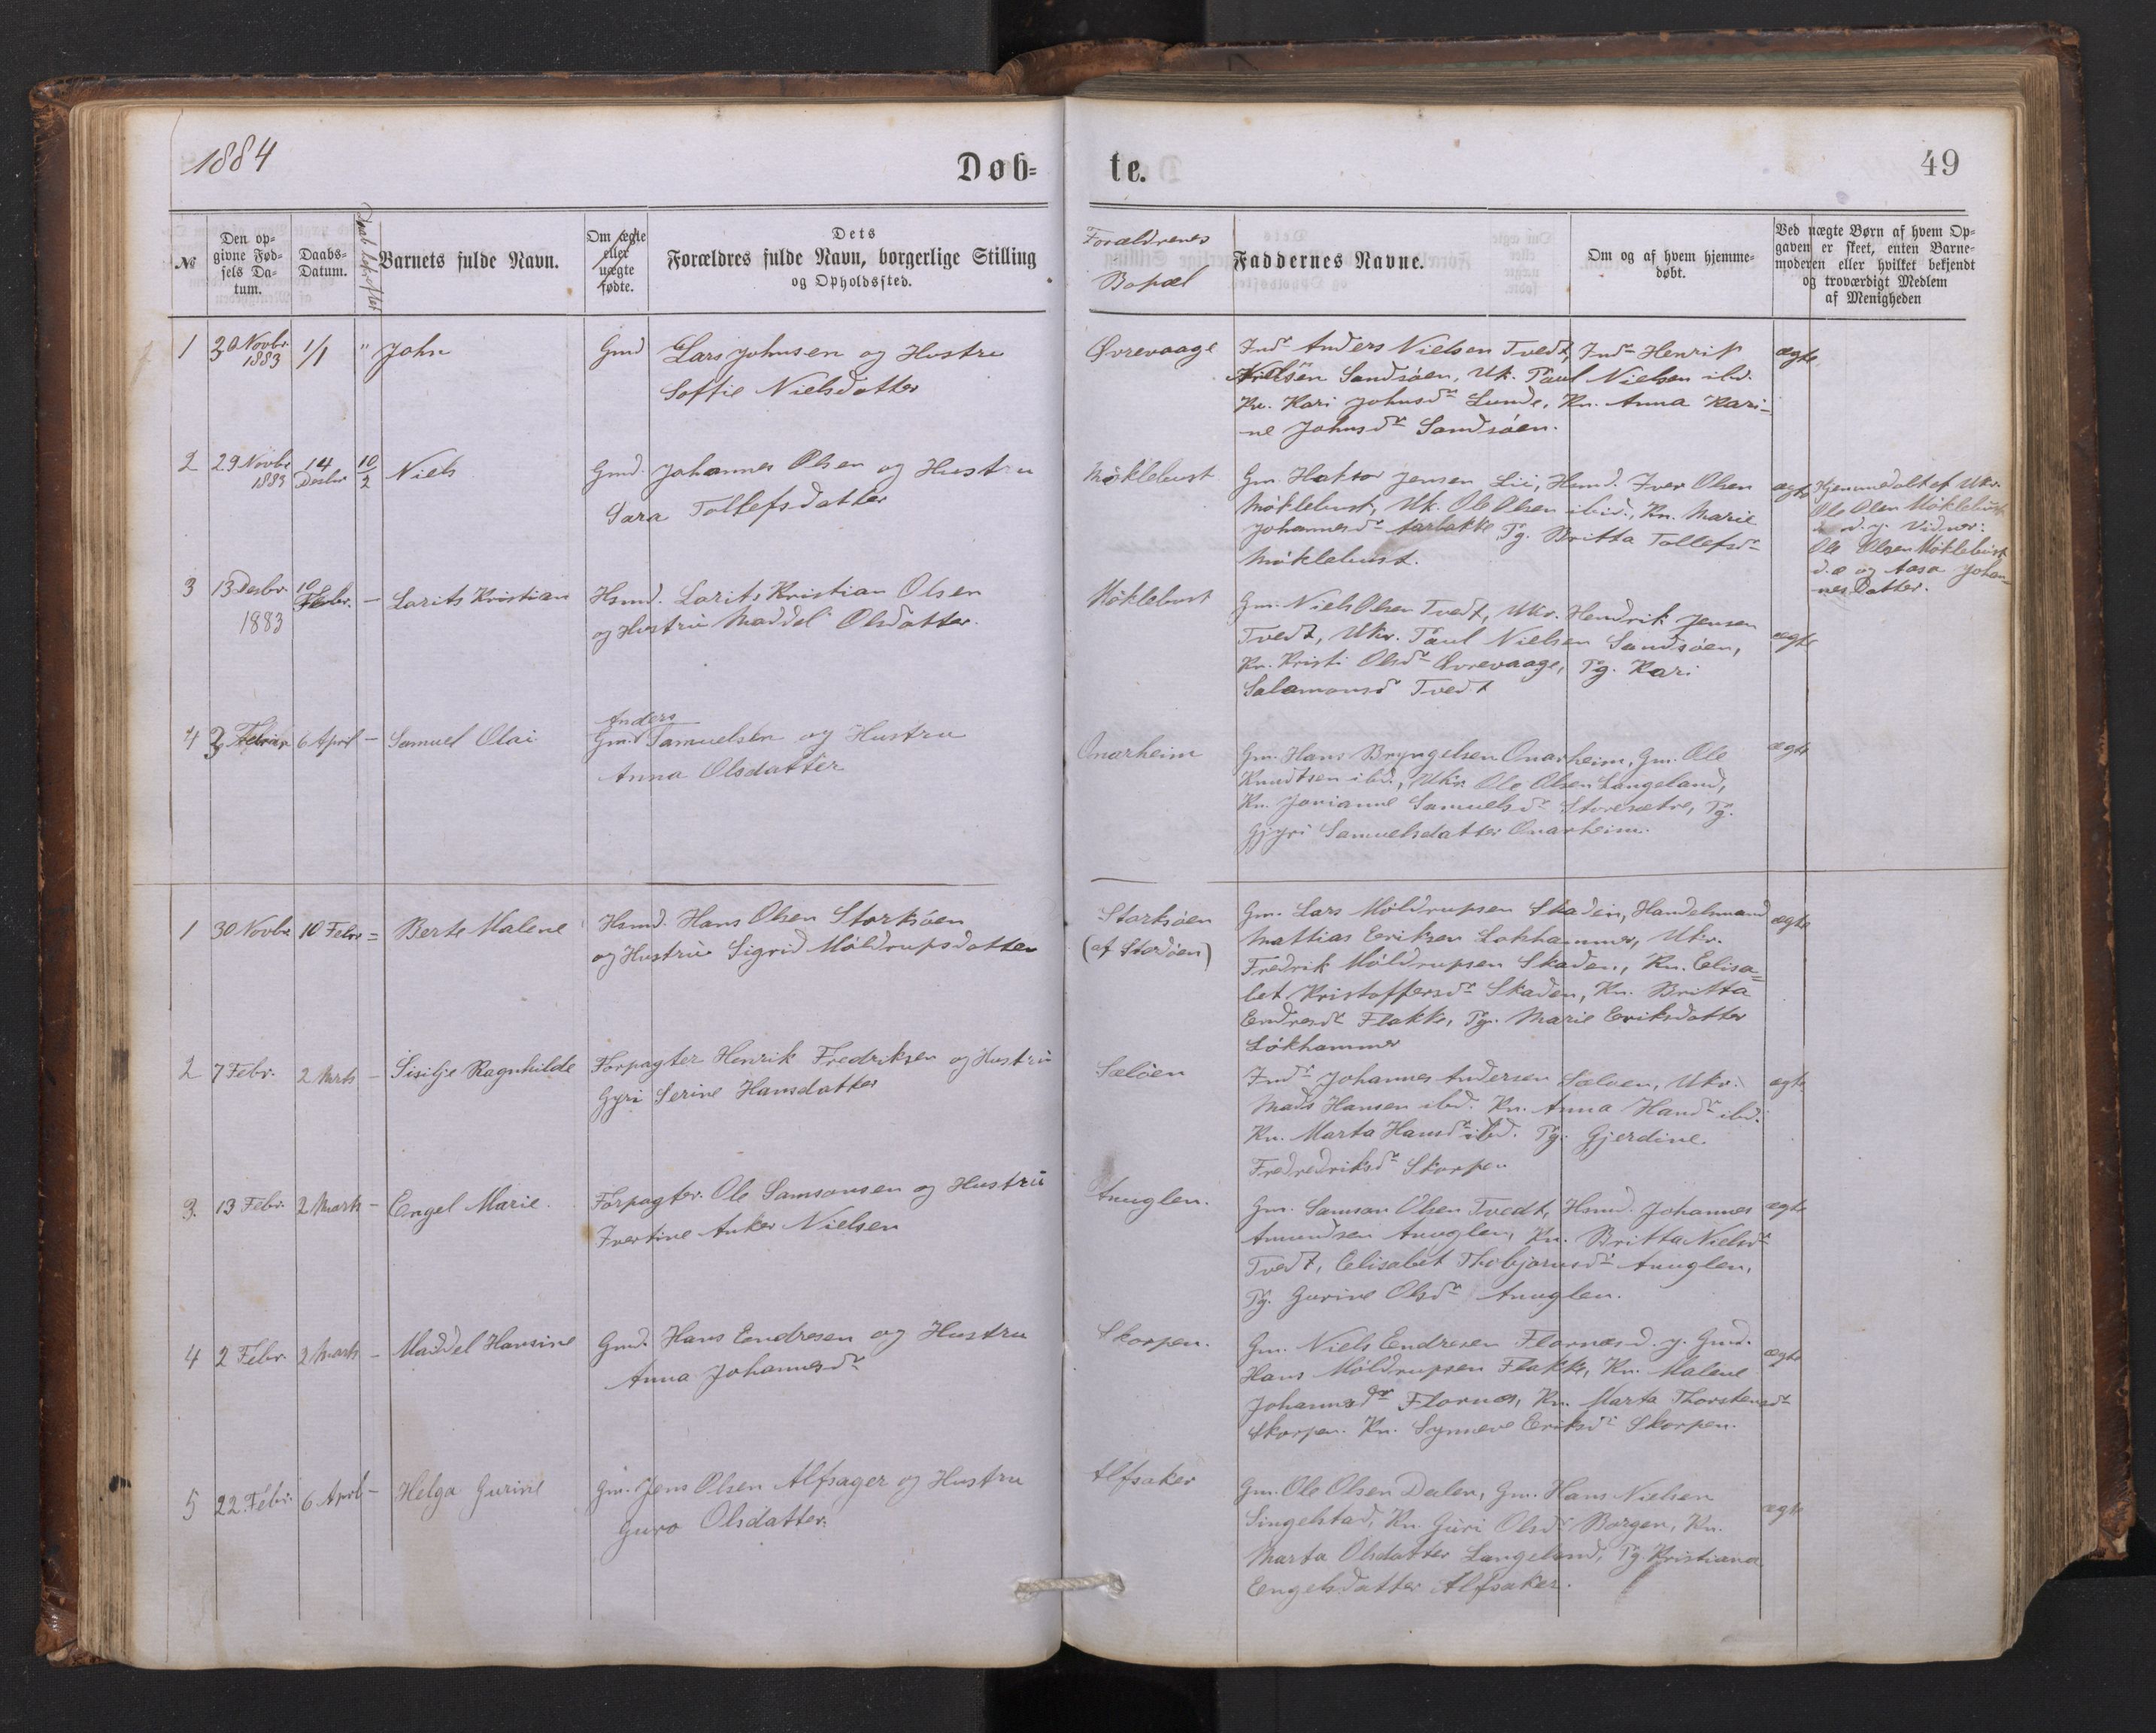 1884
Døb=
te.
49
No
Den op-
givne Fød-
sels Da-
tum.
Daabs-
Datum.
Daab bekræftet
Barnets fulde Navn.
Om ægte
eller
uægte
fødte.
Dets
Forældres fulde Navn, borgerlige Stilling
og Opholdssted.
Forældrenes
Bopæl
Faddernes Navne.
Om og af hvem hjemme-
døbt.
Ved uægte Børn af hvem Op-
gaven er skeet, enten Barne-
moderen eller hvilket bekjendt
og troværdigt Medlem
af Menigheden
1 30 Novbr. 1883 1/1 " John Gmd Lars Johnsen og Hustru
Soffie Nielsdatter
Øvrevaage
Indr Anders Nielsen Tvedt, Indr Henrik
Nielsen Sandsöen, Uk. Paul Nielsen ibd.
Kn. Kari Johnsdr Lunde, Kn. Anna Kari-
ne Johnsdr Sandsöen.
ægte
2 29 Novbr 1883 14 Desbr 10/2 Niels Gmd. Johannes Olsen og Hustru
Sara Tollefsdatter
Möklebust
Gm. Haktor Jensen Lie, Hsmd. Iver Olsen
Möklebust, Uk. Ole Olsen ibid., Kn. Marie
Johannesdr Aarbakke, Pg. Britta Tollefsdr
Möklebust.
ægte
Hjemmedöbt af Ukr.
Ole Olsen Möklebust
d. y. Vidner:
Ole Olsen Möklebust
d. æ og Aasa Johan-
nesdatter.
3 13 Desbr. 1883 10 Febr. - Larits Kristian Hsmd. Larits Kristian Olsen
og Hustru Maddel Olsdatter.
Möklebust
Gm. Niels Olsen Tvedt, Ukr. Hendrik Jensen
Tvedt, Ukr. Paul Nielsen Sandsöen,
Kn. Kristi Olsdr Øvrevaage, Pg. Kari
Salamonsdr Tvedt
ægte
4 3 Februar 6 April - Samuel Olai Anders
Gmd Samuelsen og Hustru
Anna Olsdatter
Onarheim
Gm. Hans Bryngelsen Onarheim, Gm. Ole
Knudtsen ibd., Ukr. Ole Olsen Langeland,
Kn. Jorianne Samuelsdr Storesætre, Pg.
Gjyri Samuelsdatter Onarheim.
ægte
1 30 Novbr. 10 Febr = Berte Malene Hsmd. Hans Olsen Storksöen
og Hustru Sigrid Möldrupsdatter
Storksöen
(af Stordöen)
Gm. Lars Möldrupsen Skaden, Handelsmand
Mattias Eriksen Lokhammer, Ukr.
Fredrik Möldrupsen Skaden, Kn. Elisa=
bet Kristoffersdr Skaden, Kn. Britta
Endresdr Flakke, Pg. Marie Eriksdatter
Lökhammer
ægte
2 7 Febr. 2 Mrts - Sisilje Ragnhilde Forpagter Henrik Fredriksen og Hustru
Gyri Serine Hansdatter
Sælöen
Indr Johannes Andersen Sælöen, Ukr.
Mads Hansen ibd. Kn. Anna Hansdr ibd.
Kn. Marta Hansdr ibd. Pg. Gjerdine
Fredredriksdr Skorpen
ægte
3. 13 Febr. 2 Marts - Engel Marie. Forpagter. Ole Samsonsen og Hustru
Ivertine Anker Nielsen
Anuglen.
Gm. Samson Olsen Tvedt, Hsmd. Johannes
Amundsen Anuglen, Kn. Britta Nielsdr
Tvedt, Elisabet Thobjørnsdr Anuglen,
Pg. Gurine Olsdr Anuglen.
ægte
4 2 Febr. 2 Marts - Maddel Hansine Gmd. Hans Endresen og Hustru
Anna Johannesdr
Skorpen.
Gm. Niels Endresen Flornæs d. y. Gmd.
Hans Möldrupsen Flakke, Kn. Malene
Johannesdr Flornæs, Kn. Marta Thorstensdr
Skorpen. Kn. Synneve Eriksdr Skorpen.
ægte
5 22 Febr. 6 April - Helga Gurine Gm. Jens Olsen Alfsager og Hustru
Guro Olsdatter.
Alfsaker
Gm. Ole Olsen Dalen, Gm. Hans Nielsen
Singelstad, Kn. Guri Olsdr Borgen, Kn.
Marta Olsdatter Langeland, Pg. Kristiana
Engelsdatter Alfsaker.
ægte